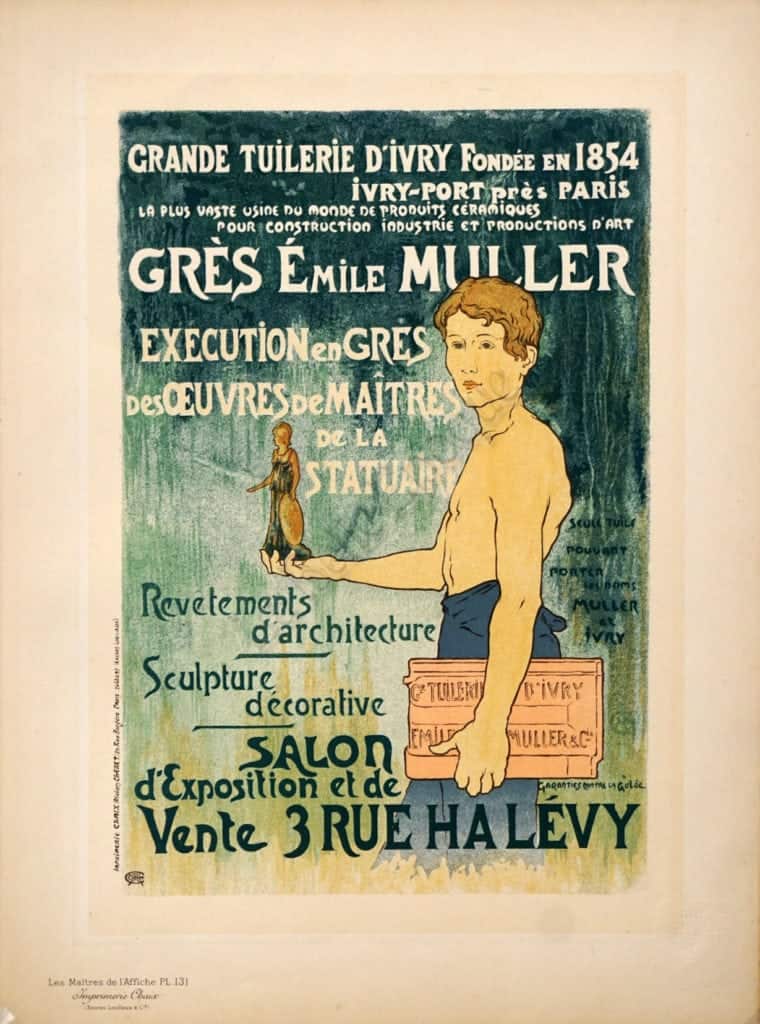 GRANDE TUILERIE D'IVRY FONDÉE EN 1854
IVRY-PORT près PARIS
LA PLUS VASTE USINE DU MONDE DE PRODUITS CÉRAMIQUES
POUR CONSTRUCTION INDUSTRIE ET PRODUCTIONS D'ART
GRÈS ÉMILE MULLER
EXECUTION en GRES
Des ŒUVRES De MAÎTRES
DE LA
STATUAIRE
SEULE TUILE
POUVANT
PORTER
LES NOMS
MULLER
ET
IVRY
Revetements
d'architecture
Sculpture
décorative
Gᵈᵉ TUILERIE D'IVRY
EMILE MULLER & Cⁱᵉ
GARANTIES CONTRE LA GELÉE
SALON
d'Exposition et de
Vente 3 RUE HALÉVY
Imprimerie CHAIX (Ateliers CHERET) 20, Rue Bergère PARIS
Les Maîtres de l'Affiche PL. 131
Imprimerie Chaix
(Encres Lorilleux & Cⁱᵉ)